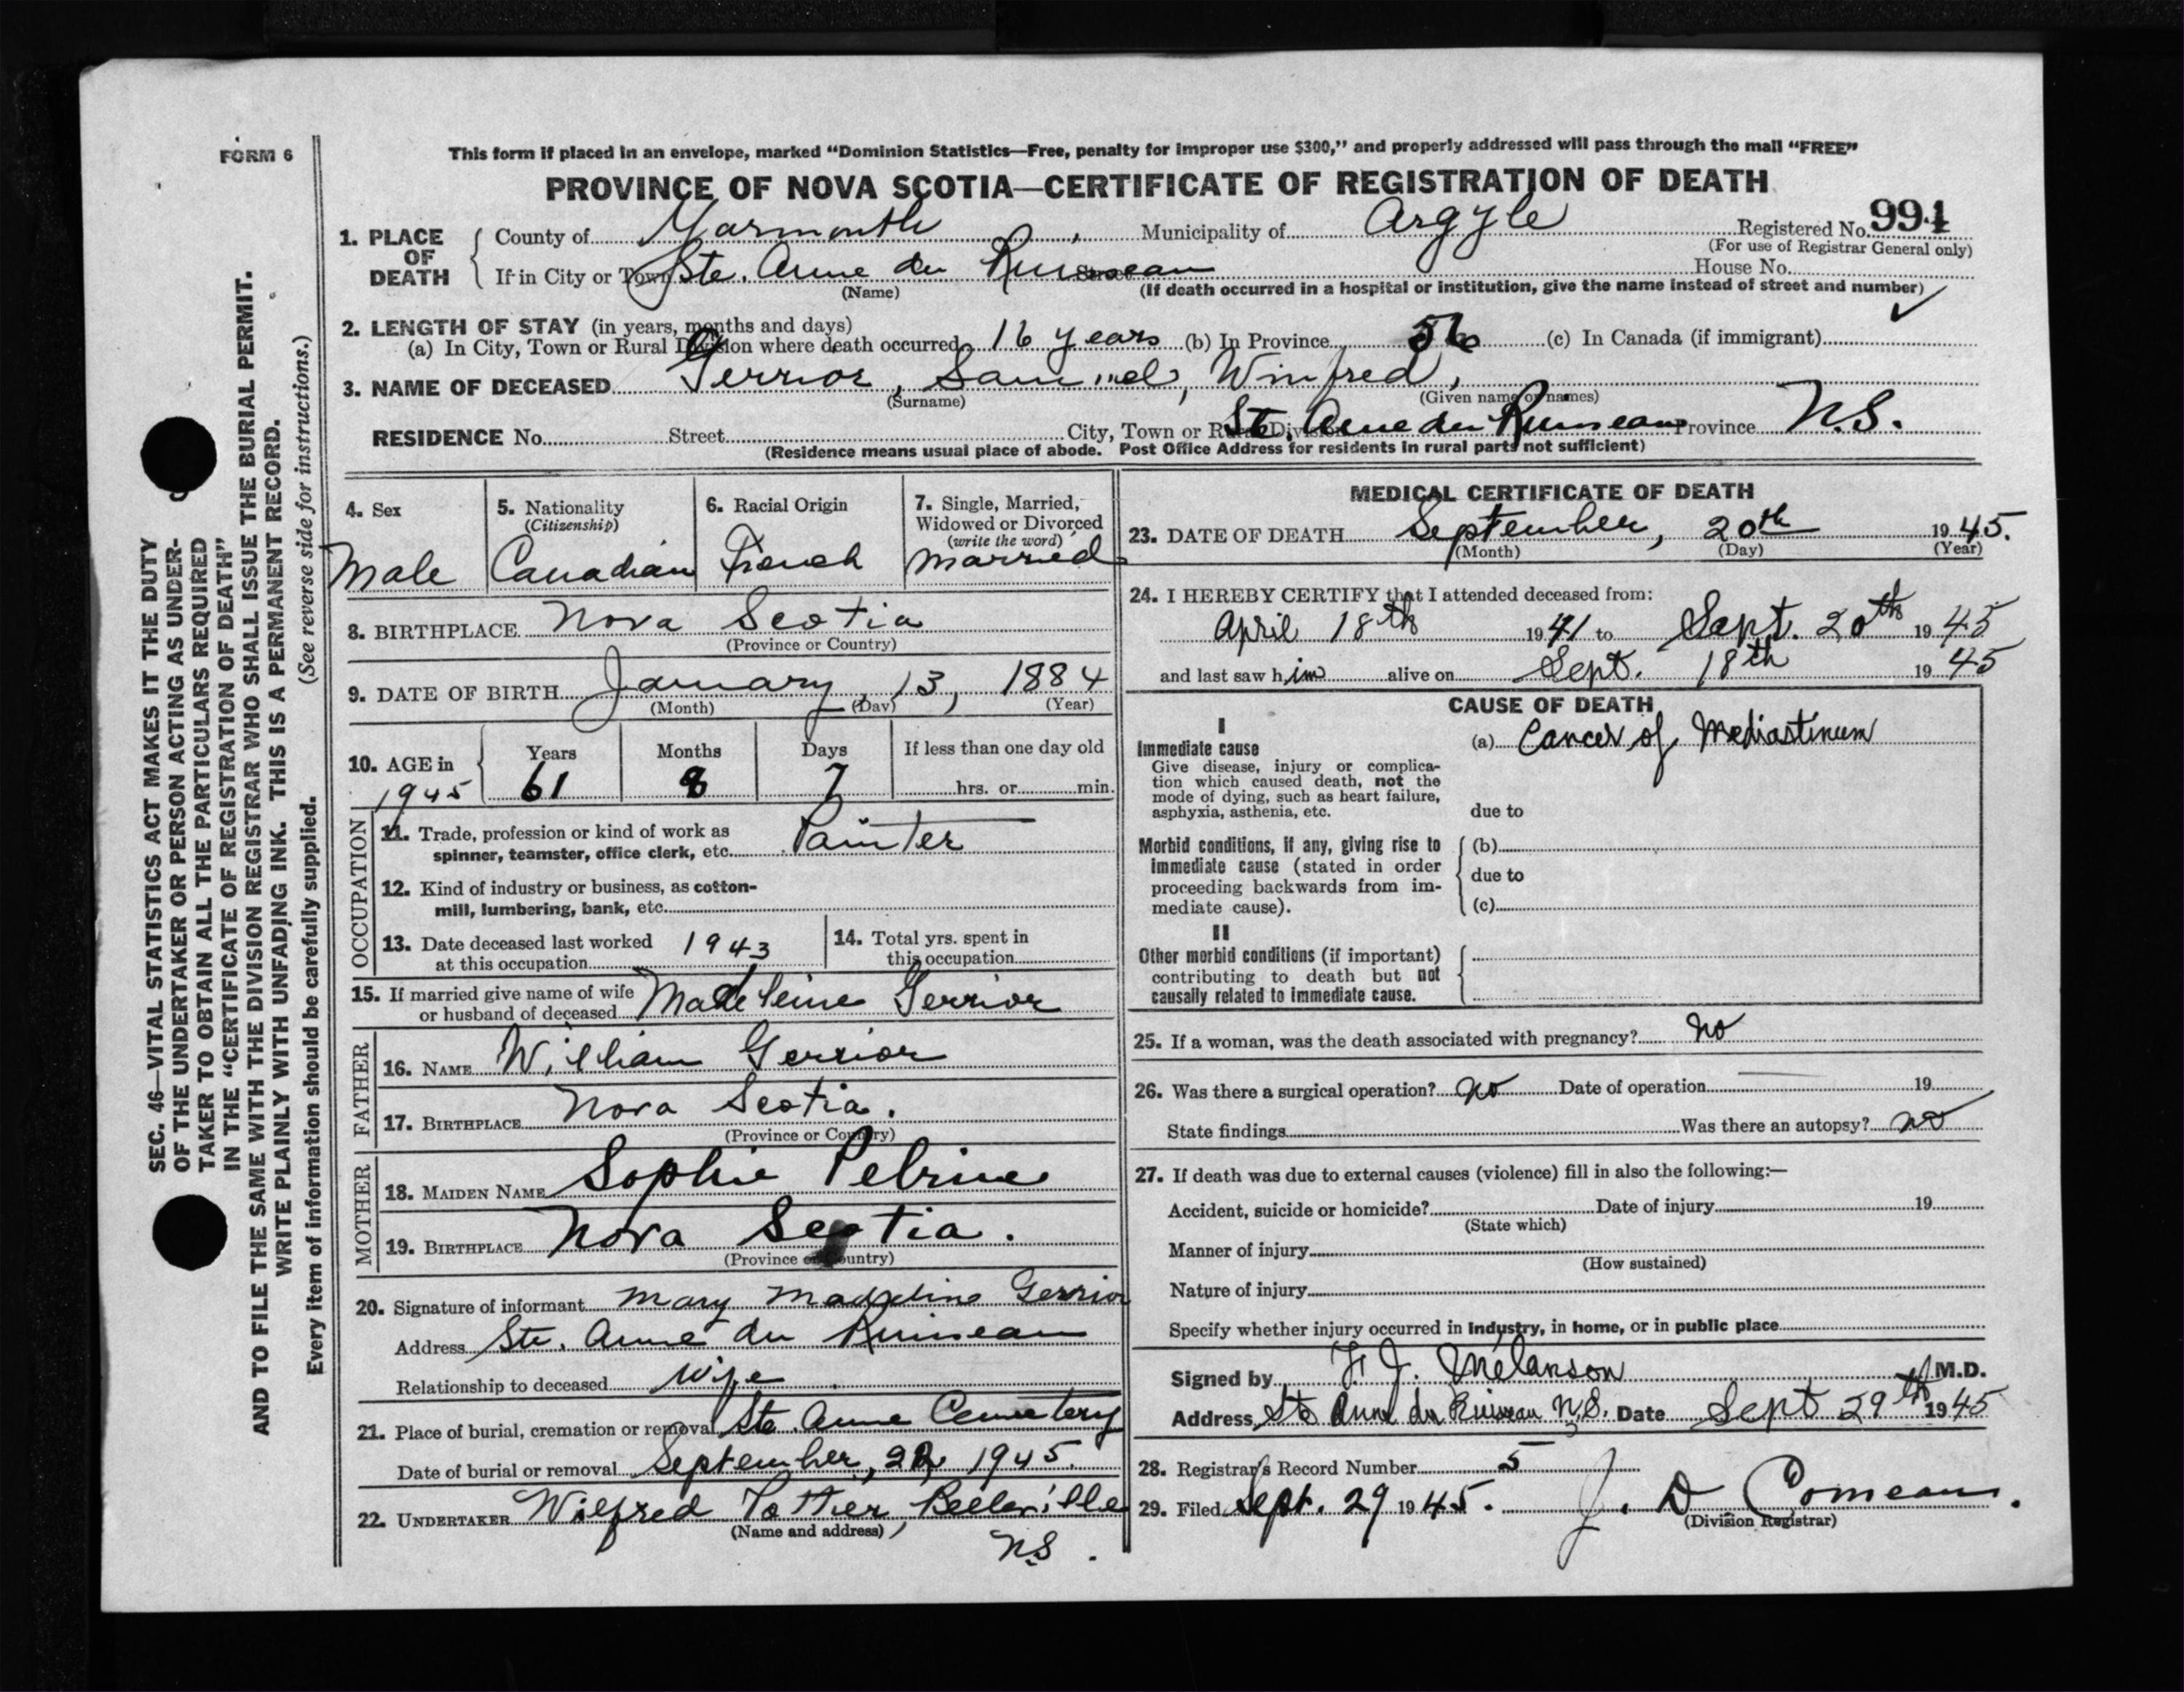 FORM 6
This form if placed in an envelope, marked "Dominion Statistics—Free, penalty for improper use $300," and properly addressed will pass through the mail "FREE"
PROVINCE OF NOVA SCOTIA—CERTIFICATE OF REGISTRATION OF DEATH
1. PLACE OF DEATH { County of Yarmouth, Municipality of Argyle Registered No. 994
(For use of Registrar General only)
If in City or Town Ste. Anne du Ruisseau Street House No.
(Name) (If death occurred in a hospital or institution, give the name instead of street and number)
2. LENGTH OF STAY (in years, months and days)
(a) In City, Town or Rural Division where death occurred 16 years (b) In Province 56 (c) In Canada (if immigrant)
3. NAME OF DECEASED Gerrior, Samuel, Winfred,
(Surname) (Given name or names)
RESIDENCE No. Street City, Town or Rural Division Ste. Anne du Ruisseau Province N.S.
(Residence means usual place of abode. Post Office Address for residents in rural parts not sufficient)
4. Sex
Male
5. Nationality
(Citizenship)
Canadian
6. Racial Origin
French
7. Single, Married,
Widowed or Divorced
(write the word)
Married
8. BIRTHPLACE Nova Scotia
(Province or Country)
9. DATE OF BIRTH January, 13, 1884
(Month) (Day) (Year)
10. AGE in 1945 { Years 61 Months 8 Days 7 If less than one day old
hrs. or min.
OCCUPATION
11. Trade, profession or kind of work as
spinner, teamster, office clerk, etc. Painter
12. Kind of industry or business, as cotton-
mill, lumbering, bank, etc.
13. Date deceased last worked
at this occupation 1943
14. Total yrs. spent in
this occupation
15. If married give name of wife
or husband of deceased Madeleine Gerrior
FATHER
16. NAME William Gerrior
17. BIRTHPLACE Nova Scotia.
(Province or Country)
MOTHER
18. MAIDEN NAME Sophie Pelrine
19. BIRTHPLACE Nova Scotia.
(Province or Country)
20. Signature of informant Mary Madeline Gerrior
Address Ste. Anne du Ruisseau
Relationship to deceased Wife
21. Place of burial, cremation or removal Ste. Anne Cemetery
Date of burial or removal September, 22, 1945.
22. UNDERTAKER Wilfred Pothier, Belleville
(Name and address)
N.S.
MEDICAL CERTIFICATE OF DEATH
23. DATE OF DEATH September, 20th 1945.
(Month) (Day) (Year)
24. I HEREBY CERTIFY that I attended deceased from:
April 18th 1941 to Sept. 20th 1945
and last saw him alive on Sept. 18th 1945
CAUSE OF DEATH
I
Immediate cause (a) Cancer of Mediastinum
Give disease, injury or complica-
tion which caused death, not the
mode of dying, such as heart failure,
asphyxia, asthenia, etc. due to
Morbid conditions, if any, giving rise to (b)
immediate cause (stated in order
proceeding backwards from im- due to
mediate cause). (c)
II
Other morbid conditions (if important)
contributing to death but not
causally related to immediate cause.
25. If a woman, was the death associated with pregnancy? No
26. Was there a surgical operation? No Date of operation 19
State findings Was there an autopsy? No
27. If death was due to external causes (violence) fill in also the following:—
Accident, suicide or homicide? Date of injury 19
(State which)
Manner of injury
(How sustained)
Nature of injury
Specify whether injury occurred in Industry, in home, or in public place
Signed by F. J. Mélanson M.D.
Address Ste Anne du Ruisseau N.S. Date Sept 29th 1945
28. Registrar's Record Number 5
29. Filed Sept. 29 1945. J. D Comeau.
(Division Registrar)
SEC. 46—VITAL STATISTICS ACT MAKES IT THE DUTY
OF THE UNDERTAKER OR PERSON ACTING AS UNDER-
TAKER TO OBTAIN ALL THE PARTICULARS REQUIRED
IN THE "CERTIFICATE OF REGISTRATION OF DEATH"
AND TO FILE THE SAME WITH THE DIVISION REGISTRAR WHO SHALL ISSUE THE BURIAL PERMIT.
WRITE PLAINLY WITH UNFADING INK. THIS IS A PERMANENT RECORD.
Every item of information should be carefully supplied. (See reverse side for instructions.)